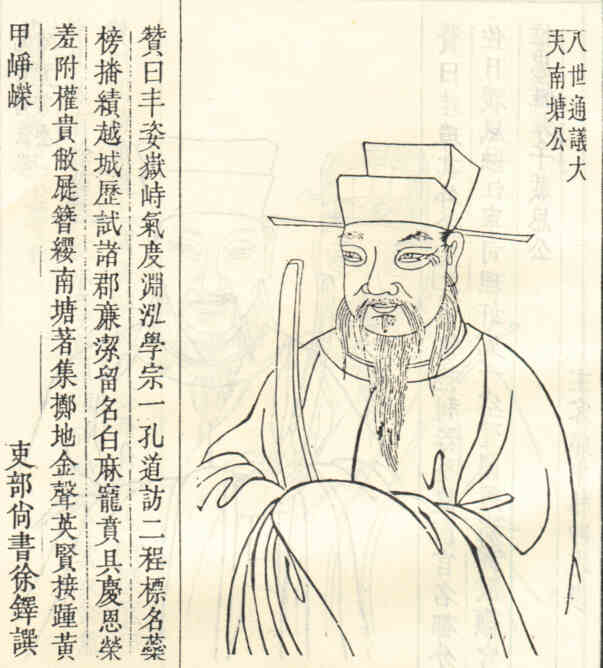 八世通議大
夫南塘公
贊曰丰姿嶽峙氣度淵泓學宗一孔道訪二程標名蘂
榜播績越城歷試諸郡廉潔留名白麻寵賁具慶恩榮
羞附權貴敝屣簪纓南塘著集擲地金聲英賢接踵黃
甲崢嶸
吏部尚書徐鐸譔